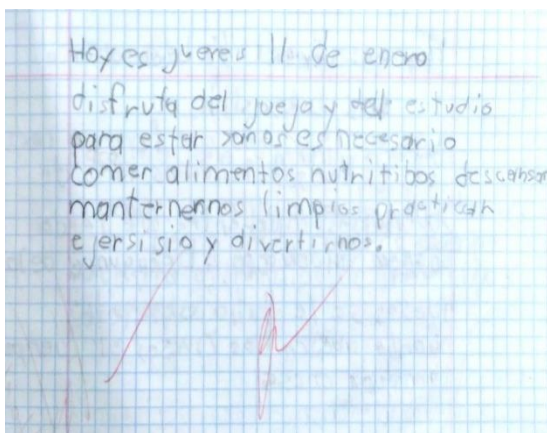 Hoy es jueves 11 de enero
disfruta del jueja y del estudio
para estar sanos es necesario
comer alimentos nutritibos descansar
manternennos limpios practican
ejersisio y divertirnos.